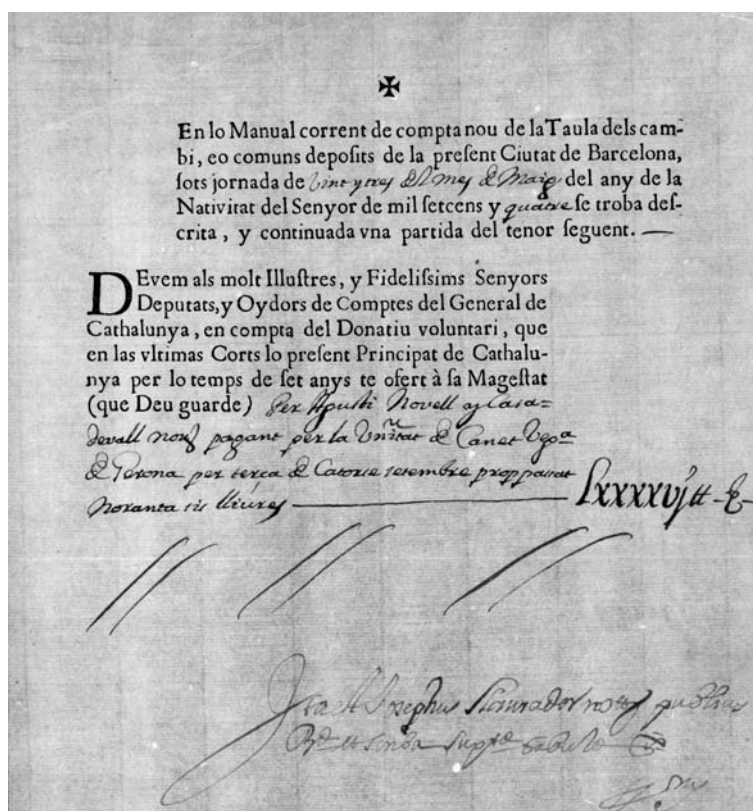 ✠
En lo Manual corrent de compta nou de la Taula dels cam-
bi, eo comuns depoſits de la preſent Ciutat de Barcelona,
ſots jornada de vint y tres del mes de Maig del any de la
Nativitat del Senyor de mil ſetcens y quatre ſe troba deſ-
crita, y continuada vna partida del tenor ſeguent. —
DEvem als molt Illuſtres, y Fideliſsims Senyors
Deputats, y Oydors de Comptes del General de
Cathalunya, en compta del Donatiu voluntari, que
en las vltimas Corts lo preſent Principat de Cathalu-
nya per lo temps de ſet anys te ofert à ſa Mageſtat
(que Deu guarde) Per Agusti Novell y Casa=
devall pagant per la de Canet
de Gerona per terça de Catorse setembre prop passat
Noranta sis lliures — Lxxxxvj
Ita est Josephus publicus